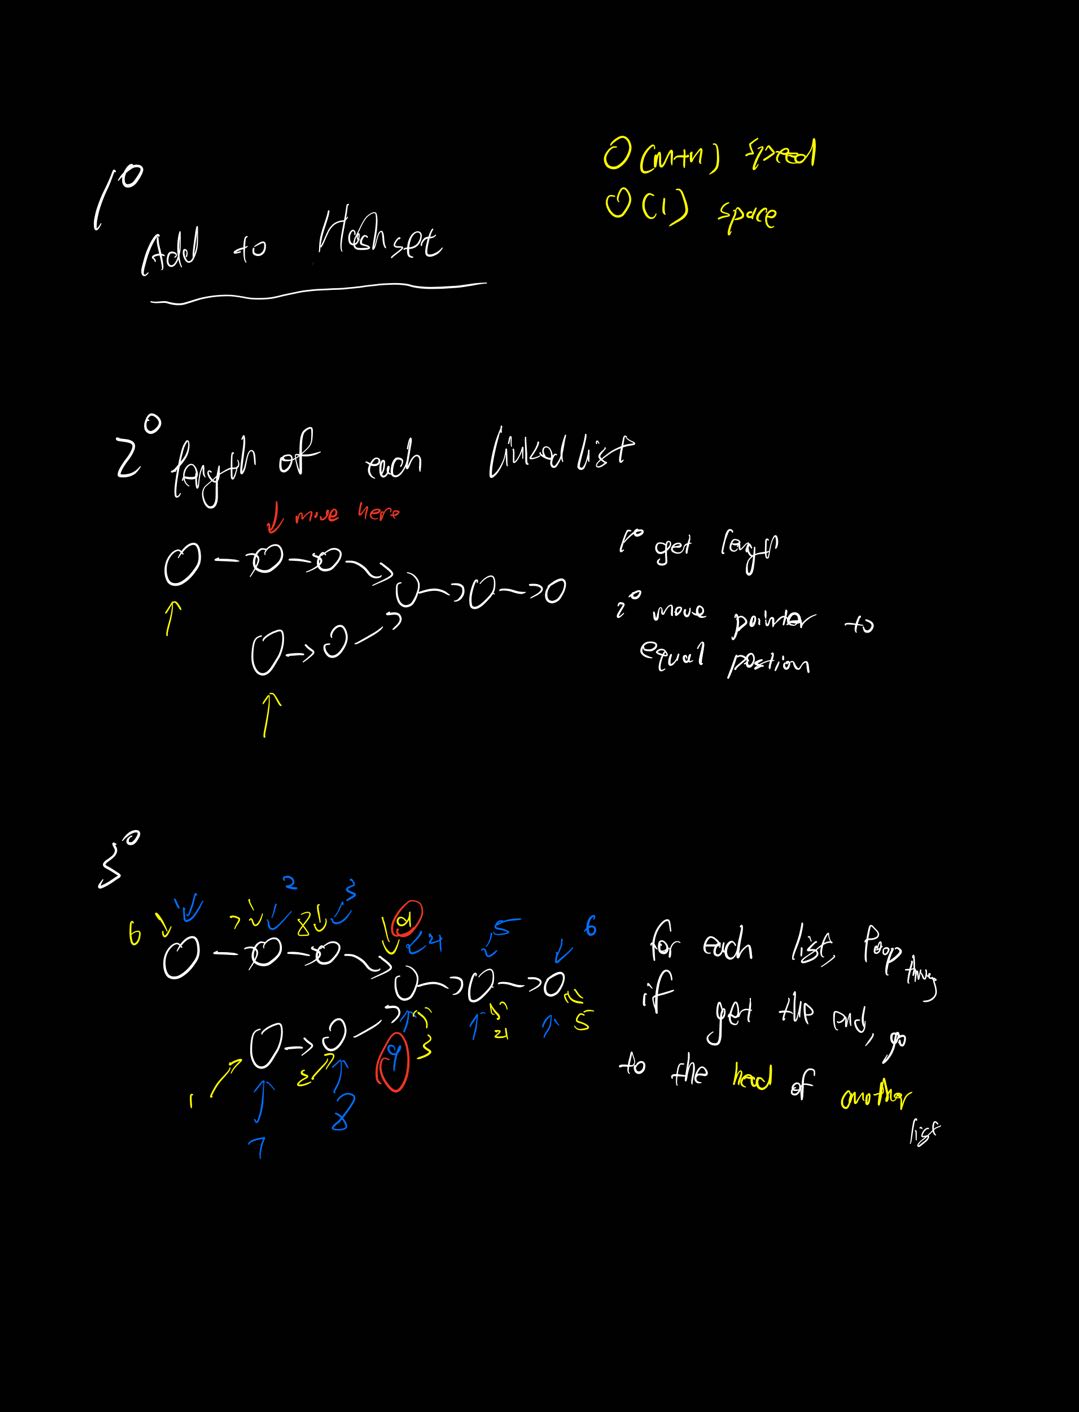 1°
Add to Hashset
O(m+n) speed
O(1) space
2° length of each linked list
move here
1° get length
2° move pointer to
equal postion
3°
6 7 2 8 3 9 4 5 6
1 2 9 3 4 5
7 8
for each list, loop thrug
if get the end, go
to the head of another
list